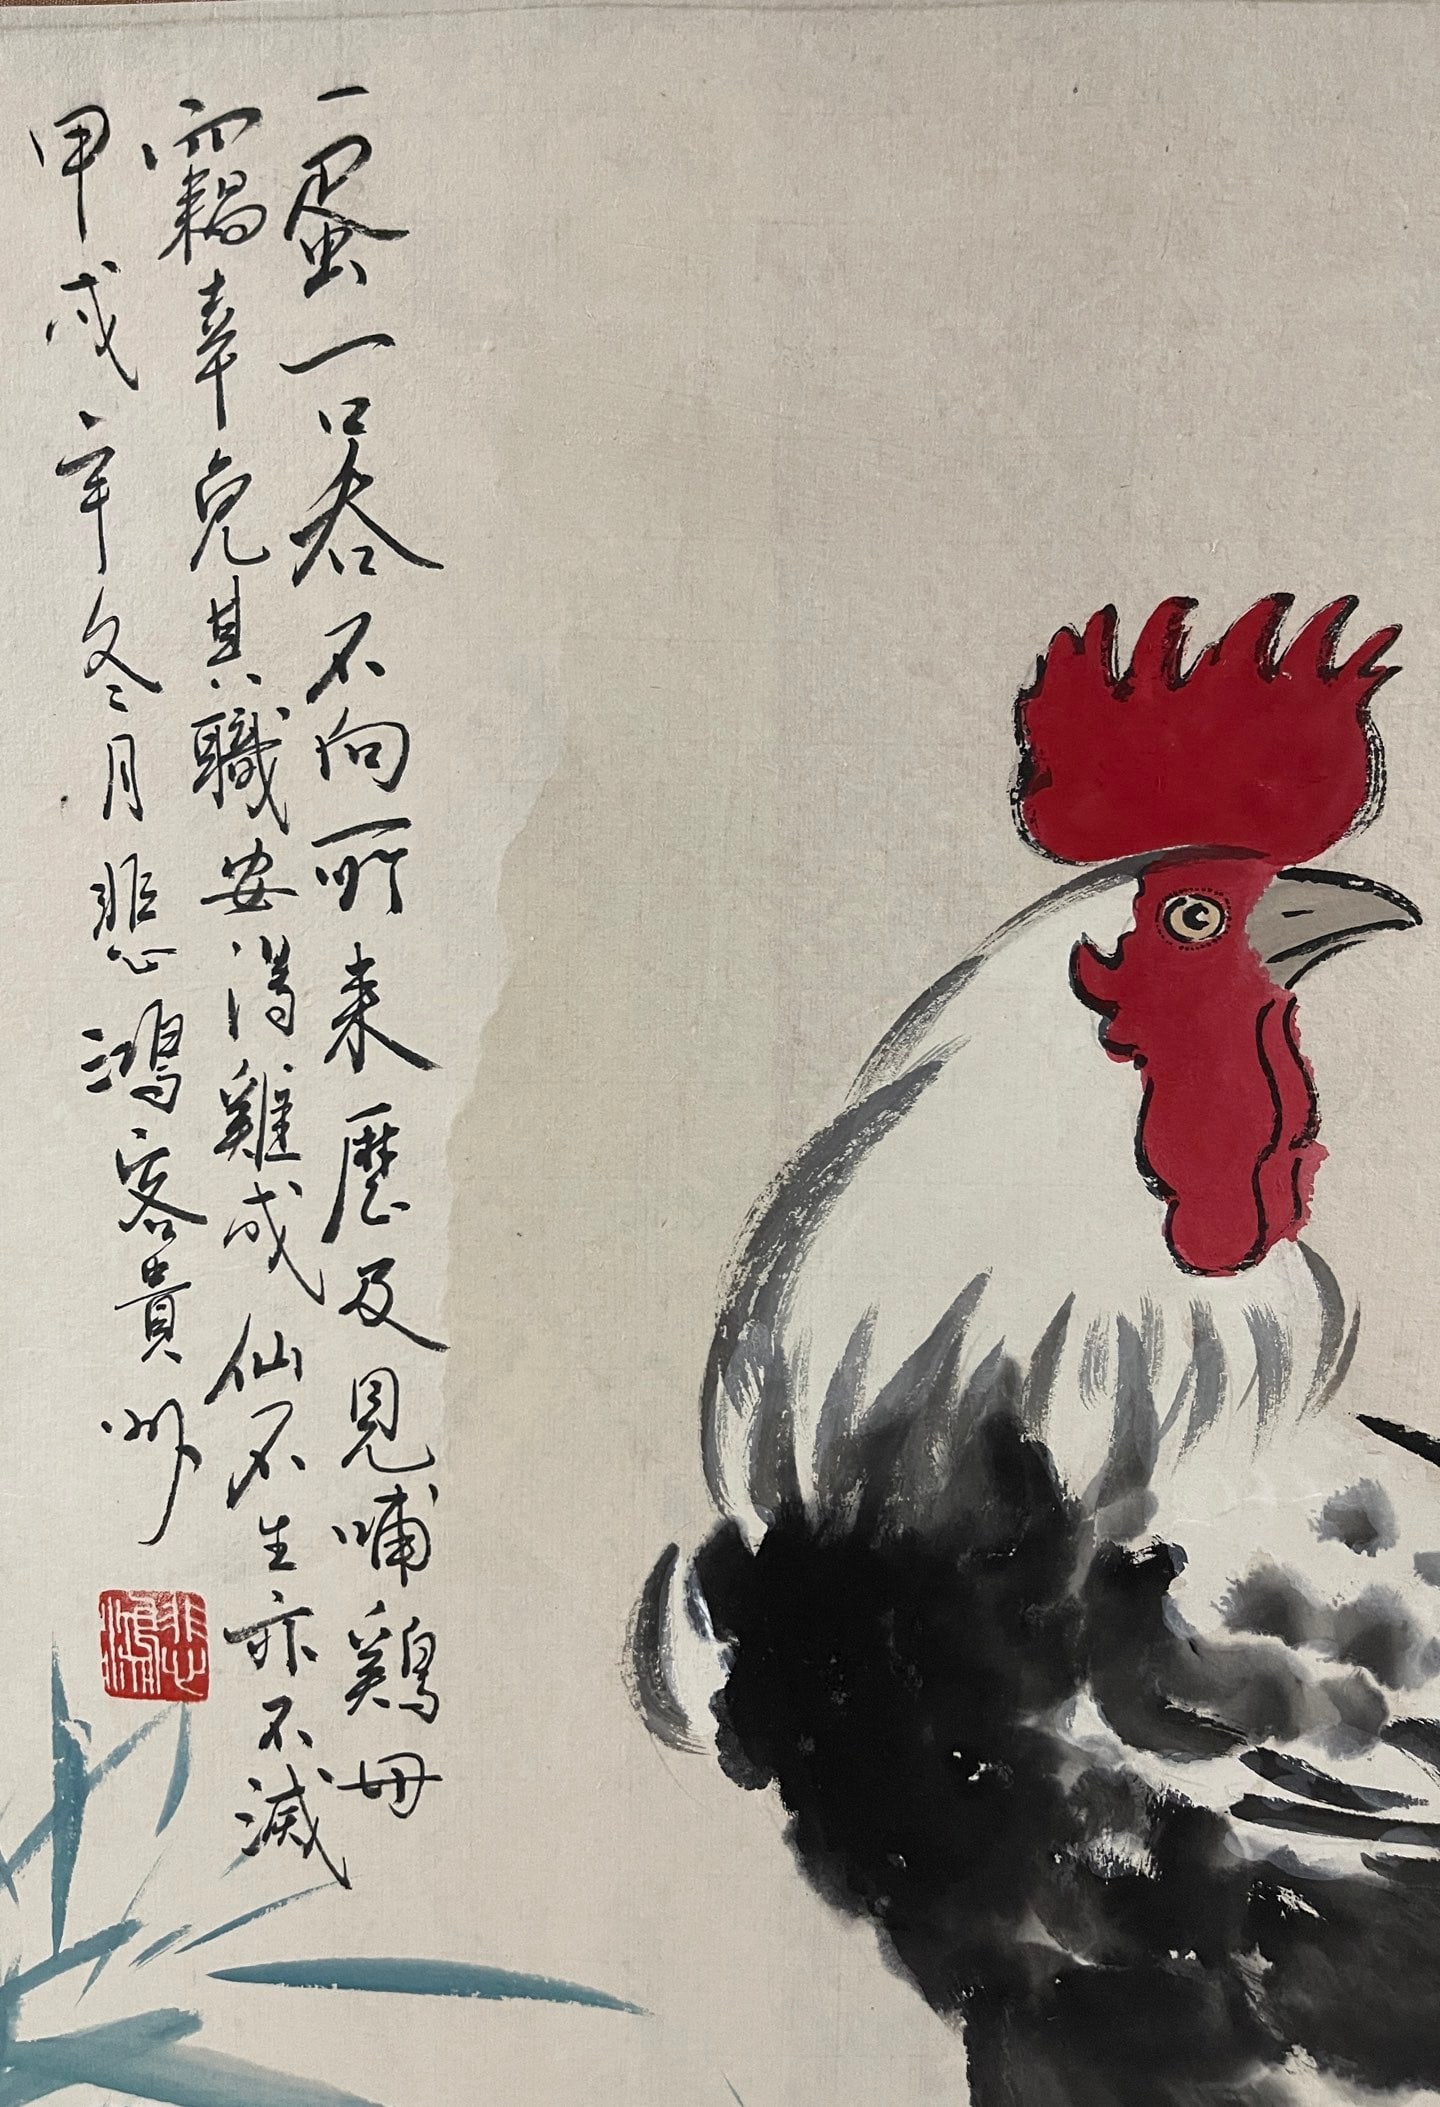 一蛋一口吞不向所来歷及見哺鷄毋
竊幸免其職安得雞成仙不生亦不滅
甲戌辛冬月悲鴻客貴州
悲鴻